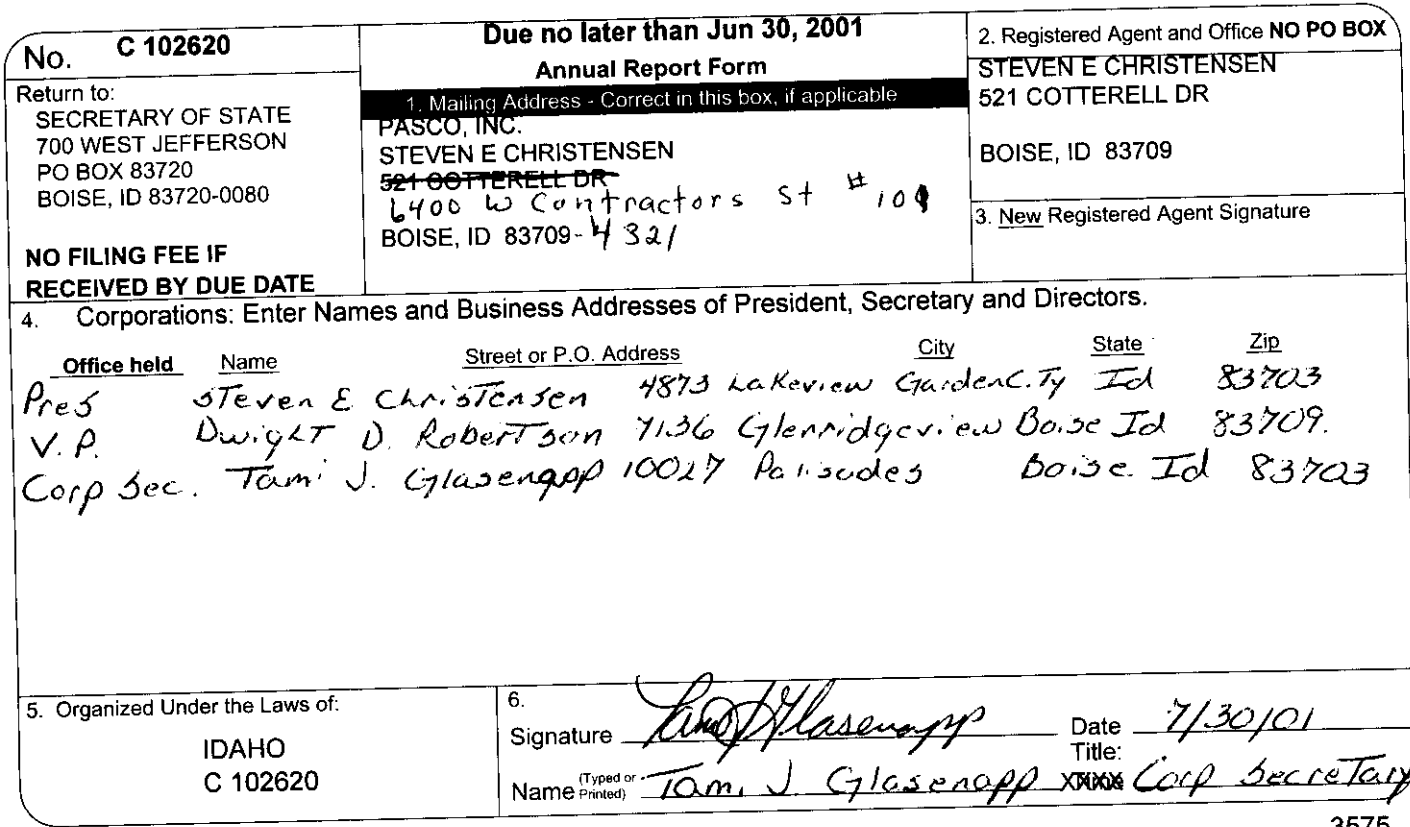 No. C 102620
Return to:
SECRETARY OF STATE
700 WEST JEFFERSON
PO BOX 83720
BOISE, ID 83720-0080
NO FILING FEE IF
RECEIVED BY DUE DATE
Due no later than Jun 30, 2001
Annual Report Form
1. Mailing Address - Correct in this box, if applicable
PASCO, INC.
STEVEN E CHRISTENSEN
521 COTTERELL DR
6400 W Contractors St #
BOISE, ID 83709-4321
2. Registered Agent and Office NO PO BOX
STEVEN E CHRISTENSEN
521 COTTERELL DR
BOISE, ID 83709
3. New Registered Agent Signature
4. Corporations: Enter Names and Business Addresses of President, Secretary and Directors.
Office held Name Street or P.O. Address City State Zip
Pres Steven E Christensen 4873 Lakeview Garden City Id 83703
V.P. Dwight D. Robertson 7136 Glenridgeview Boise Id 83709.
Corp Sec. Tami J. Glasenapp 10027 Palisades Boise Id 83703
5. Organized Under the Laws of:
IDAHO
C 102620
6.
Signature Tami J Glasenapp Date 7/30/01
Title:
Name (Typed or Printed) Tami J Glasenapp Corp Secretary
3575